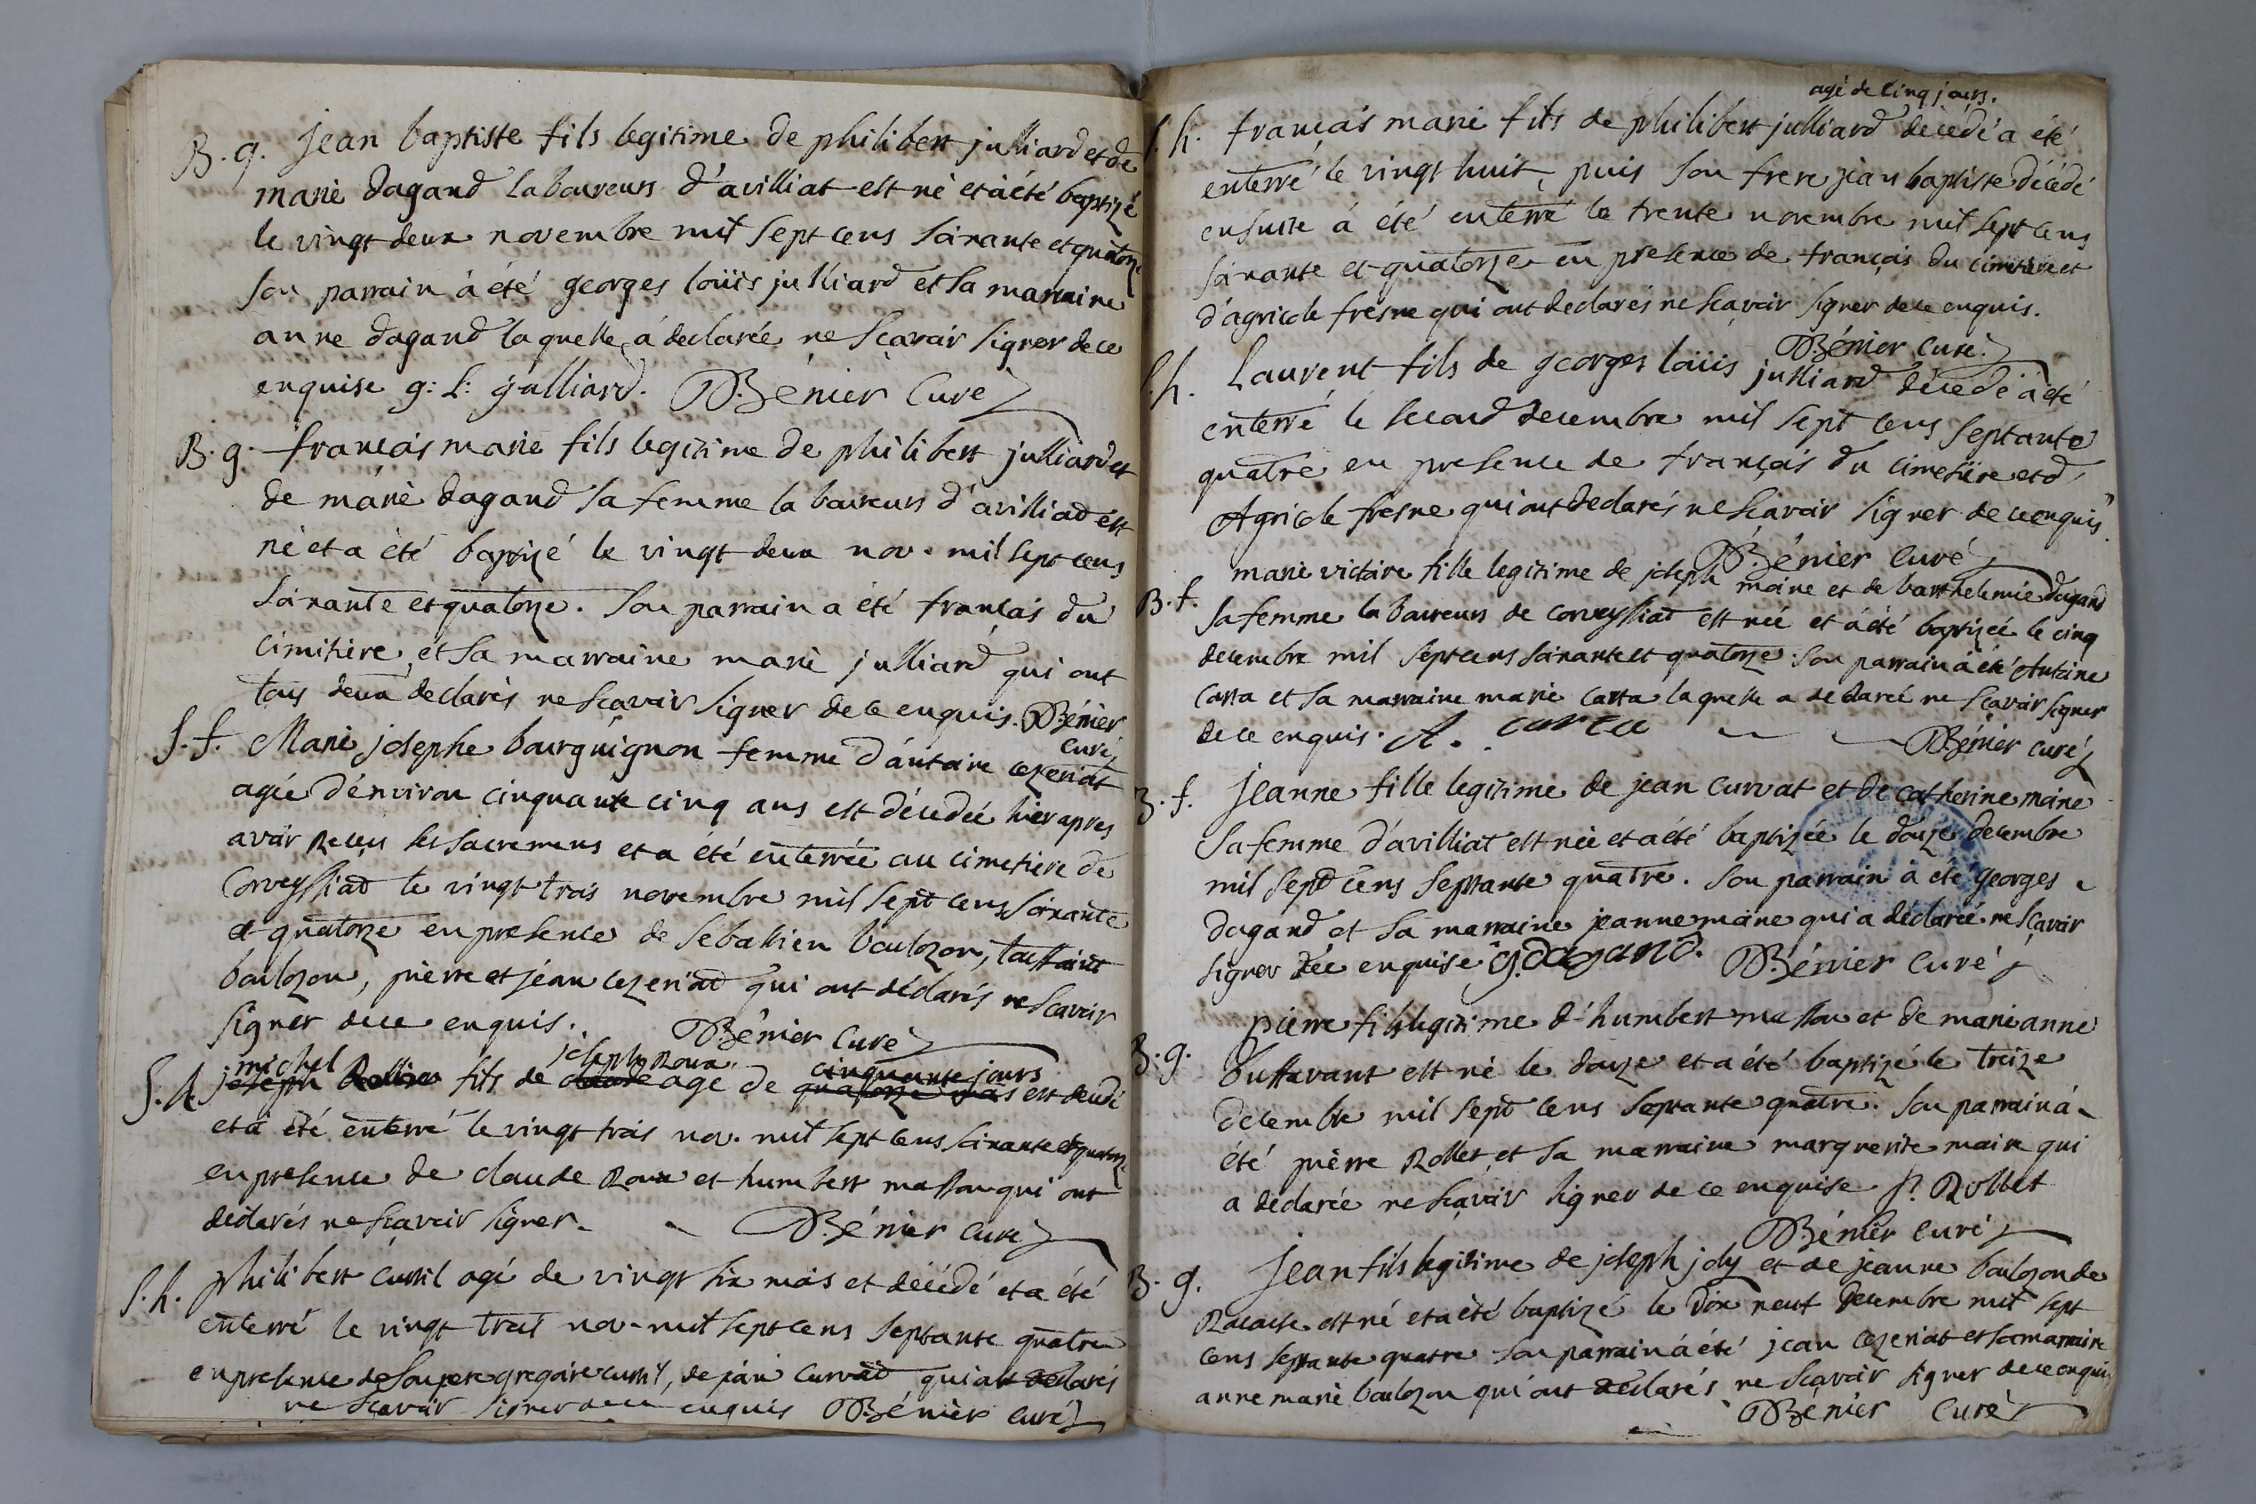 B. g. jean baptiste fils legitime de philibert julliard et de
marie dagand laboureurs d'avilliat est né et à été baptizé
le vingt deux novembre mil sept cens soixante et quatorze
son parrain à été georges loüis julliard et sa marraine
anne dagand laquelle á declarée ne sçavoir signer de ce
enquise g: L: julliard. Bénier Curé
B. g. francois marie fils legitime de philibert julliard et
de márie dagand sa femme laboureurs d'avilliad est
né et a été baptizé le vingt deux nov. mil sept cens
soixante et quatorze. son parrain a été francois du
cimitiere et sa marraine marie julliard qui ont
tous deux declarés ne sçavoir signer de ce enquis. Bénier
curé
S. f. Marie josephe bourguignon femme d'antoine cezeriat
agée d'environ cinquante cinq ans est décedée hier apres
avoir recus les sacremens et a été enterrée au cimetiere de
Corveyssiad le vingt trois novembre mil sept cens soixante
et quatorze en presence de sebastien boulozon, toussaint
boulozon, pierre et jéan cezeriad qui ont déclarés ne scavoir
signer de ce enquis. Bénier curé
michel joseph Roux cinquante jours
S. h. joseph fils de claude agé de quatorze mois est decedé
et a été enterré le vingt trois nov. mil sept cens soixante et quatorze
en presence de claude Roux et humbert masson qui ont
déclarés ne sçavoir signer. Bénier curé
S. h. philibert cussil agé de vingt six mois et décédé et a été
enterré le vingt trois nov. mil sept cens septante quatre
en presence de son pere gregoire cussil, de jéan curvad qui ont declarés
ne sçavoir signer de ce enquis Bénier curé
agé de cinq jours.
S. h. francois marie fils de philibert julliard decedé a été
enterré le vingt huit, puis son frere jean baptiste décédé
ensuite á été enterré le trente novembre mil sept cens
soixante et quatorze en presence de francois du cimetiere et
d'agricole fresne qui ont declarés ne sçavoir signer de ce enquis.
Bénier curé
S. h. Laurent fils de georges loüis julliard décedé à été
enterré le second decembre mil sept cens septante
quatre en presence de françois du cimetiere et d'
Agricole fresne qui ont declarés ne sçavoir signer de ce enquis
Bénier curé
B. f. marie victoire fille legitime de joseph moine et de barthelemie dagand
sa femme laboureurs de corveyssiad est née et á été baptizée le cinq
decembre mil sept cens soixante et quatorze. son parrain á été Antoine
Carta et sa marraine marie carta laquelle a declarée ne sçavoir signer
de ce enquis. A. carta Bénier curé
B. f. Jeanne fille legitime de jean curvat et de catherine moine
sa femme d'avilliat est née et a été baptizée le douze decembre
mil sept cens septante quatre. son parrain à été georges
dagand et sa marraine jeanne moine qui a déclarée ne sçavoir
signer de ce enquise g. dagand. Bénier curé
B. g. pierre fils legitime d'humbert masson et de marie anne
buffavant est né le douze et a été baptizé le treize
decembre mil sept cens septante quatre. son parrain á
été pierre Rollet et sa marraine marguerite moine qui
a déclarée ne sçavoir signer de ce enquise p. Rollet
Bénier curé
B. g. Jean fils legitime de joseph joly et de jeanne boulozon de
Racouse est né et a été baptizé le dix neuf decembre mil sept
cens septante quatre son parrain á été jean cezeriat et sa marraine
anne marie boulozon qui ont déclarés ne sçavoir signer de ce enquis
Bénier curé